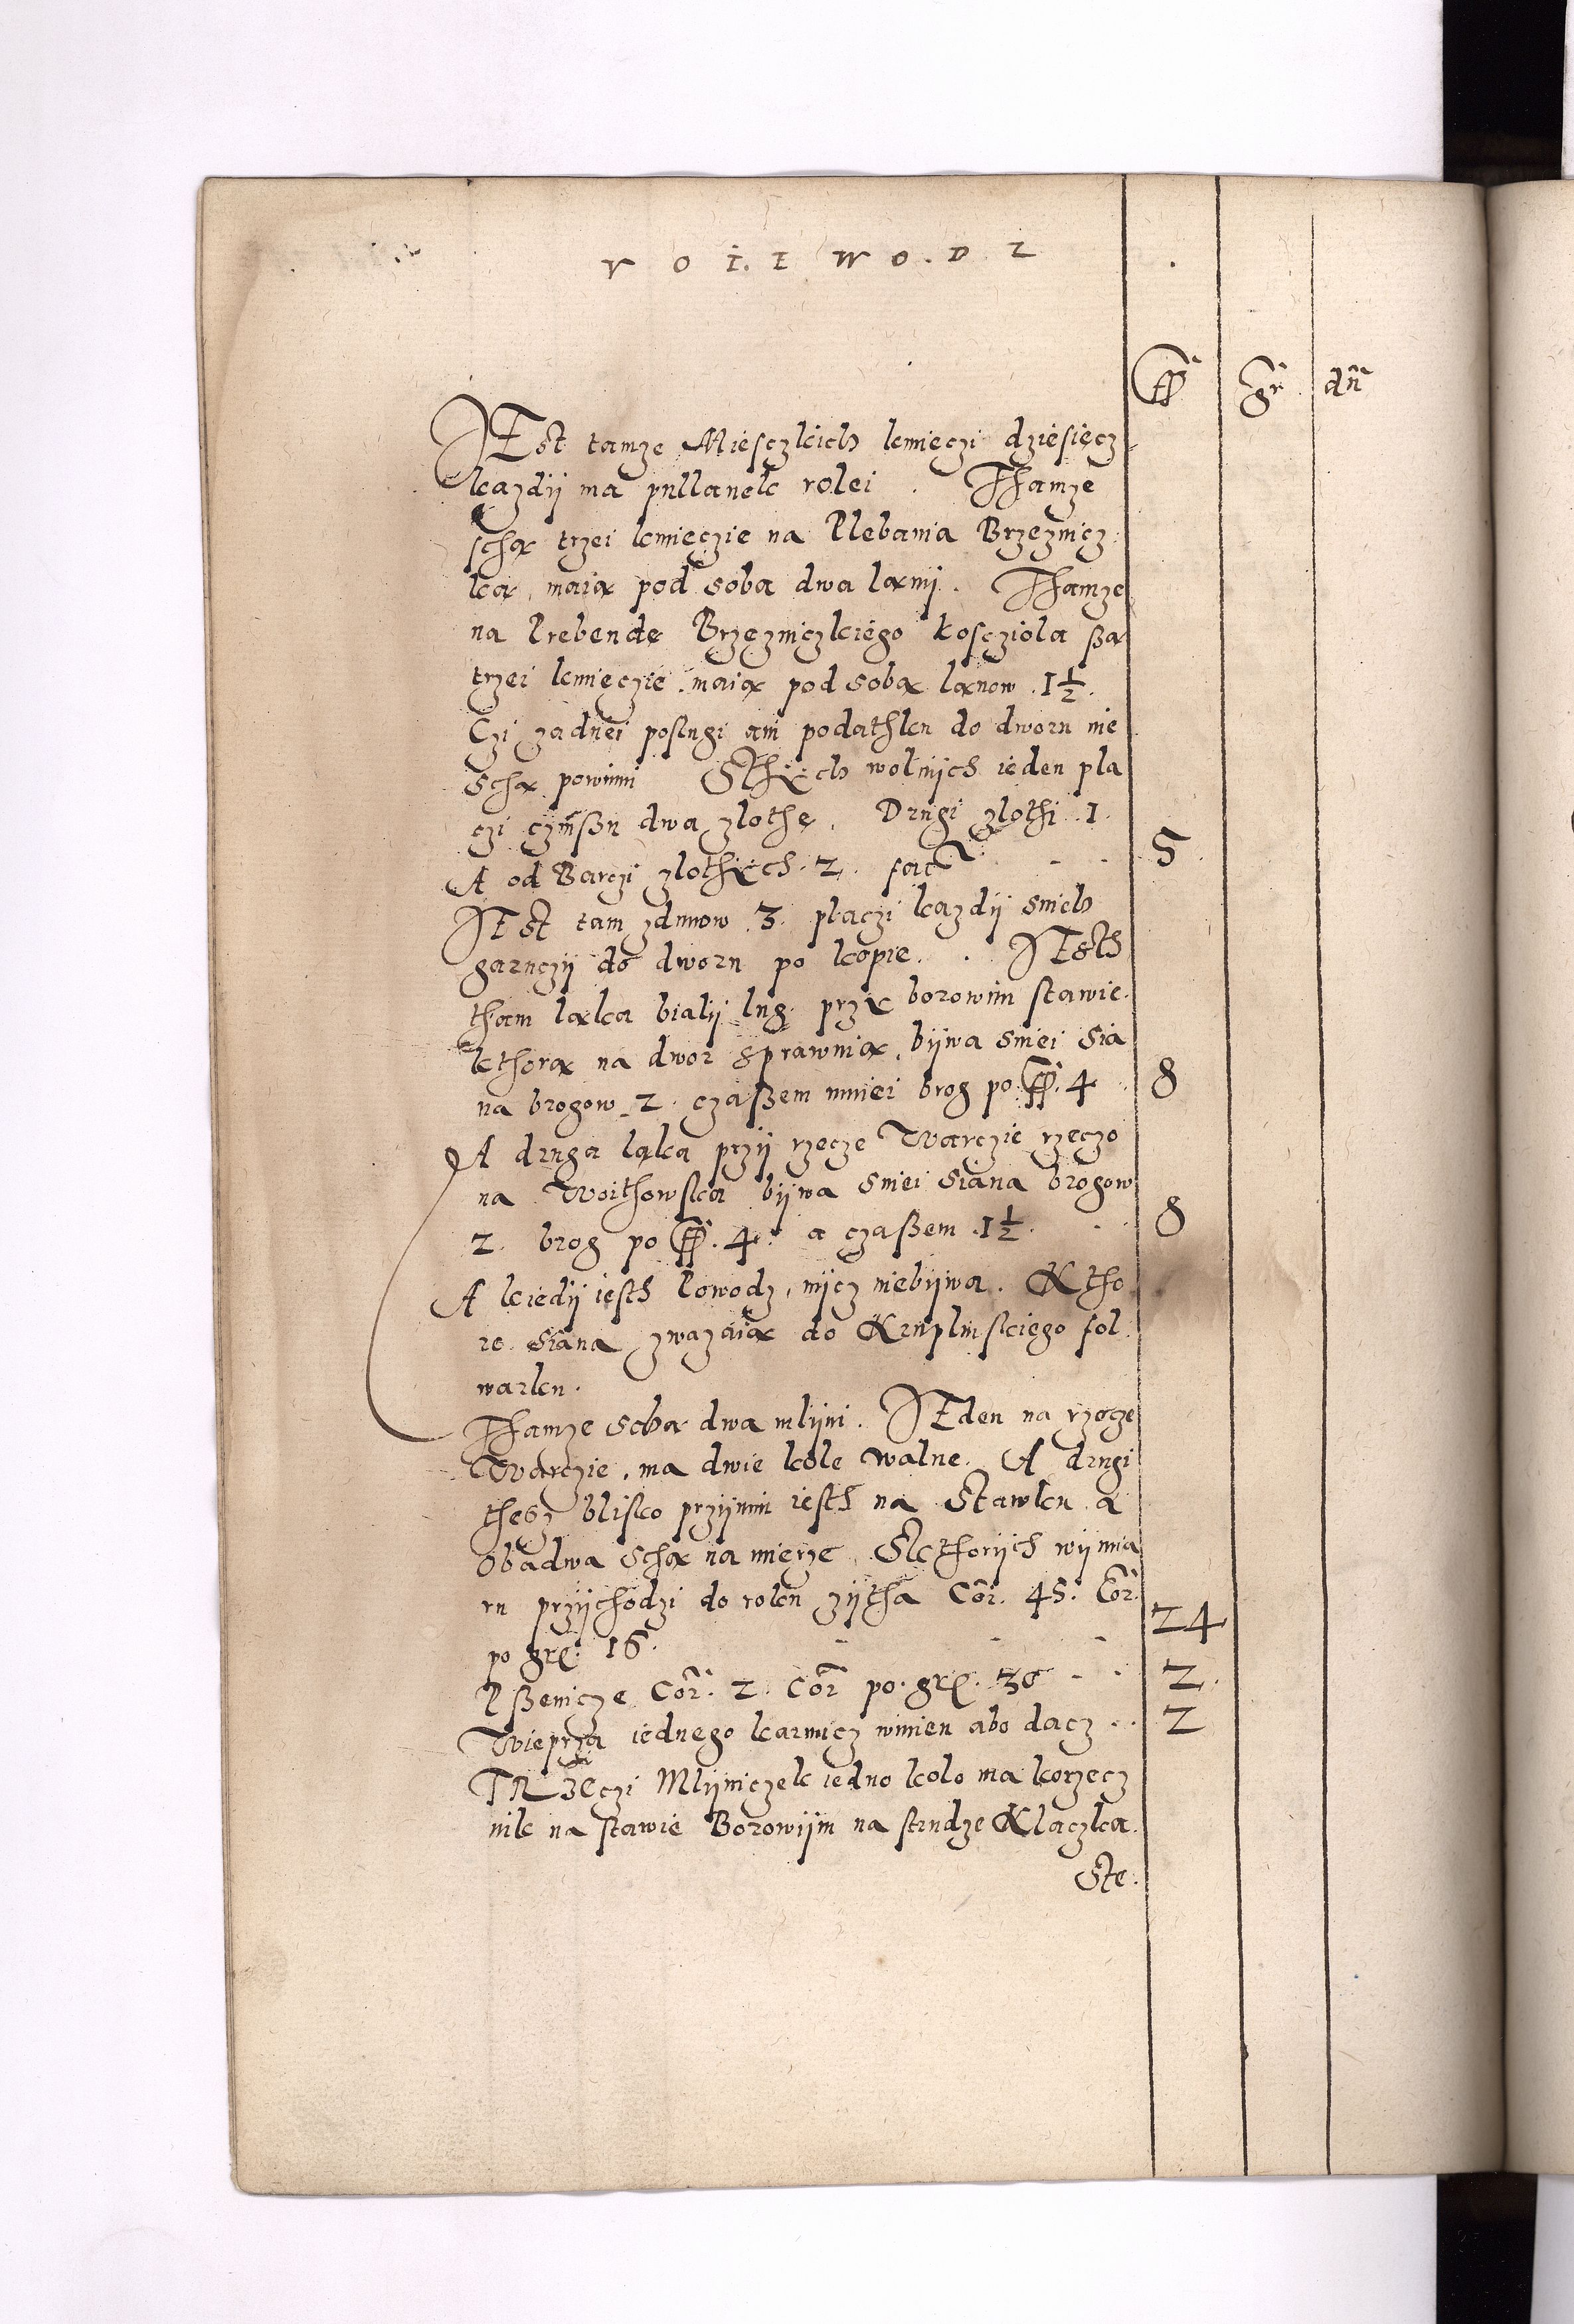 V O I. I W O. D Z
ff gr dn
JEst tamze Miesczkich kmięczi dziesięcz
kazdij ma pullanek rolei . Thamze
scha trzei kmięczie na Plebania Brzeznicz
ka, maia pod soba dwa lanij. Thamze
na Prebende Brzezniczkiego kosciola ßa
trzei kmięczie, maia pod soba lanow .1½.
Czi zadnei poslugi ani podathku do dworu nie
scha powinni Sthych wolnijch ieden pla
czi czinßu dwa zlothe, Drugi zlothi .1.
A od Barczi zlothych .2. fact 5
JEst tam zdunow 3. placzi kazdij snich
garnczij do dworu po kopie. . JEsth
tham laka bialij lug. przy borowim stawie.
kthora na dwor sprawnia, bijwa sniei sia
na brogow 2. czaßem mniei brog po ff. 4 8
A druga laka przij rzecze Warczie rzeczo
na Woithowska bijwa sniei siana brogow
2. brog po ff. 4. a czaßem .1½. 8
A kiedij iesth Powodz, nijcz niebijwa. Ktho
re siana zwazaia do Kruplinskiego fol
warku.
Thamze scha dwa mlijni. JEden na rzecze
Warczie, ma dwie kole walne. A drugi
thesz blisko przijnim iesth na Stawku a
obadwa scha na mierze, Skthorijch wijmia
ru przijchodzi do roku zijtha Cor. 45. Cor.
po gr. 16. 24
Pßenicze Cor. 2. Cor po. gr. 30 2.
Wieprza iednego karmicz winien abo dacz 2
TRZEczi Mlijniczek iedno kolo ma korzecz
nik na stawie Borowijm na strudze Klaczka.
Ste.